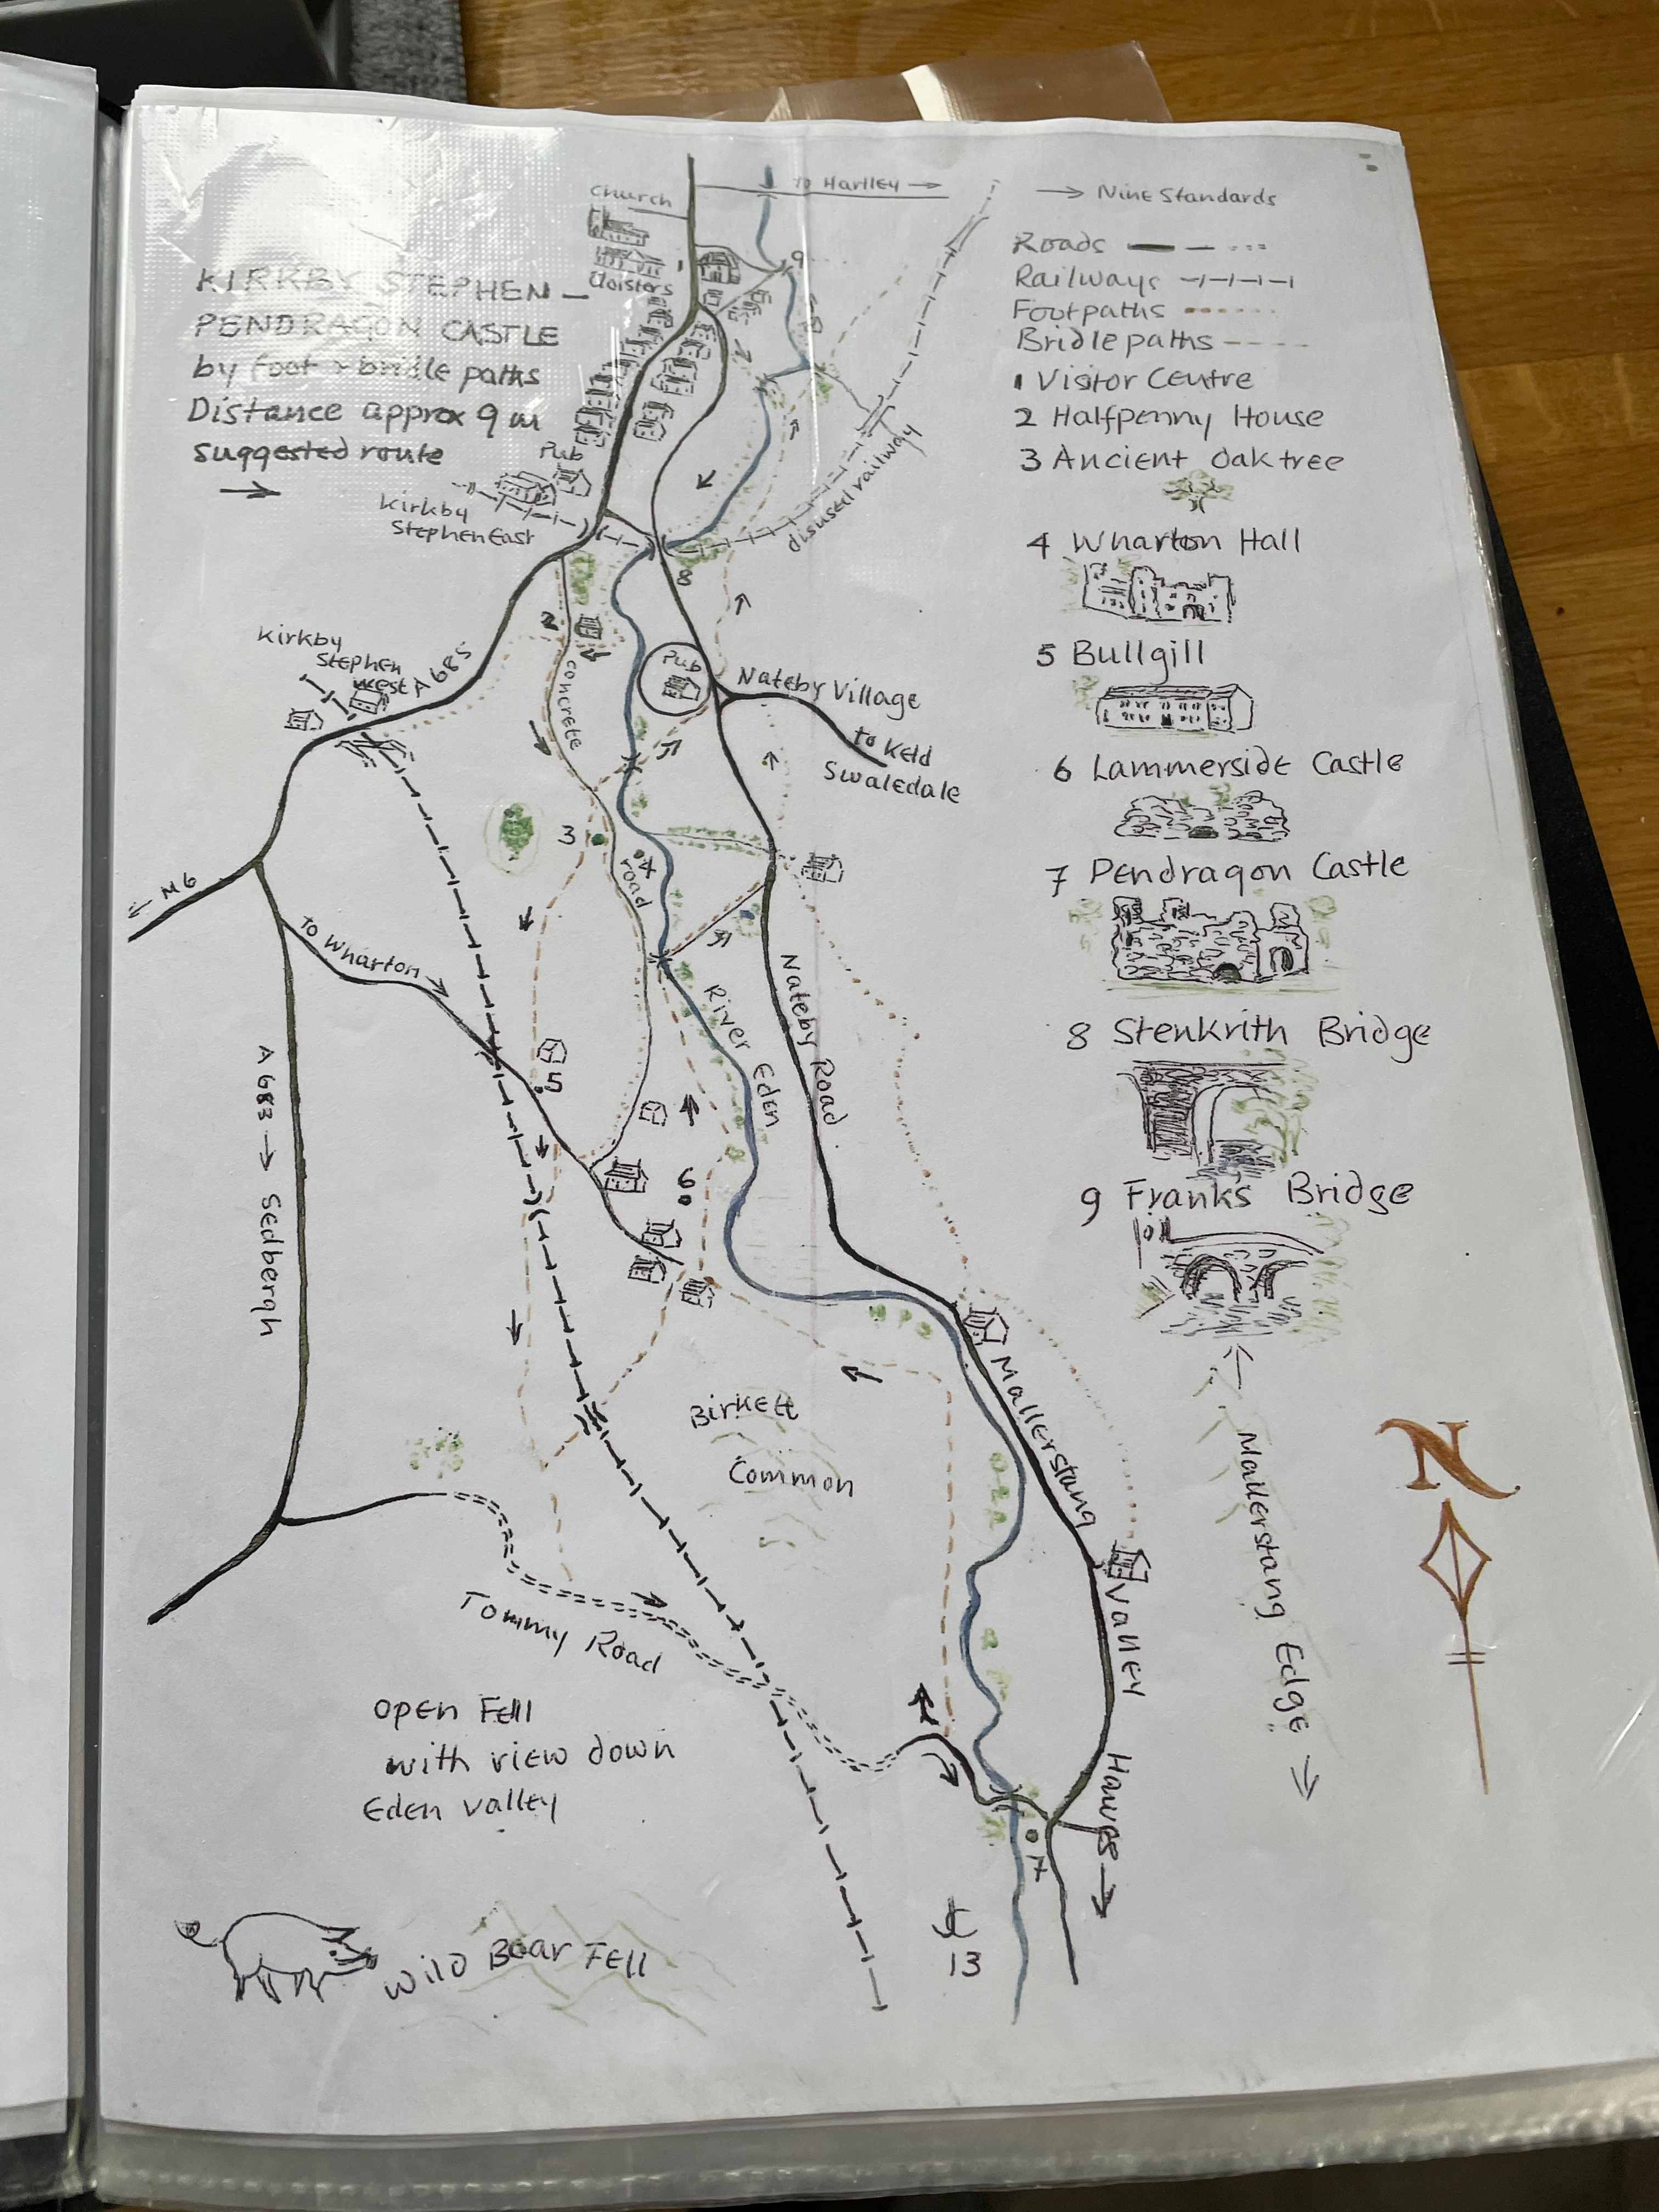 KIRKBY STEPHEN –
PENDRAGON CASTLE
by foot & bridle paths
Distance approx 9 m
Suggested route
Church
Cloisters
1
To Hartley
9
Nine Standards
Roads
Railways
Footpaths
Bridle paths
1 Visitor Centre
2 Halfpenny House
3 Ancient Oak tree
4 Wharton Hall
5 Bullgill
6 Lammerside Castle
7 Pendragon Castle
8 Stenkrith Bridge
9 Franks Bridge
Pub
Kirkby
Stephen East
disused railway
8
2
Kirkby
Stephen
West
A 685
concrete
road
Pub
Nateby Village
to Keld
Swaledale
3
4
M6
to Wharton
River
Eden
Nateby Road
5
6
A 683
Sedbergh
Birkett
Common
Mallerstang
Valley
Mallerstang Edge
N
Tommy Road
open Fell
with view down
Eden valley
Hawes
7
13
Wild Boar Fell